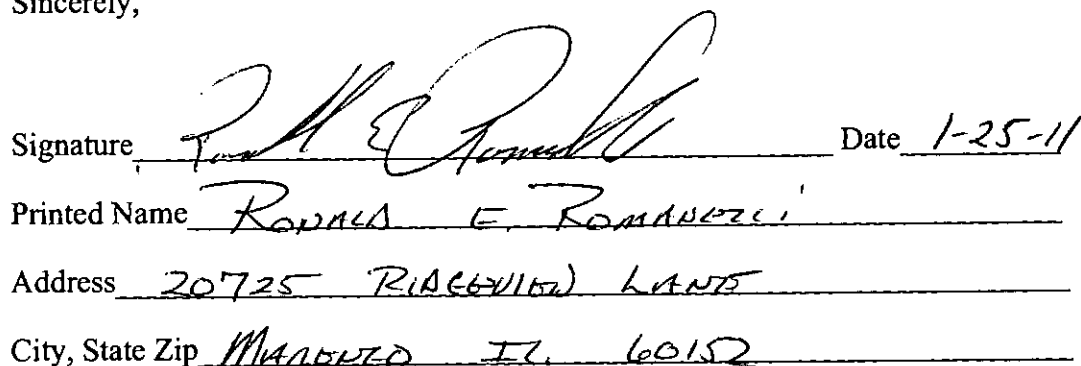 Sincerely,
Signature Ronald E Romanelli Date 1-25-11
Printed Name RONALD E. ROMANELLI
Address 20725 RIDGEVIEW LANE
City, State Zip MARENGO IL. 60152